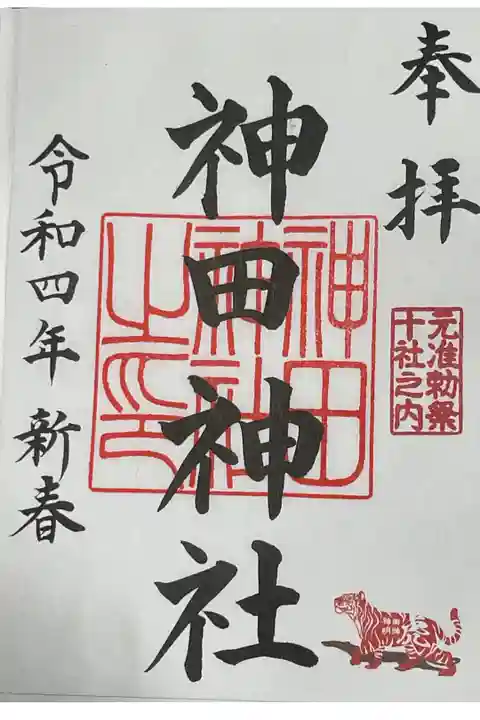 奉拝
元准勅祭
十社之内
神田神社
神田
神社
之印
令和四年 新春
神田明神